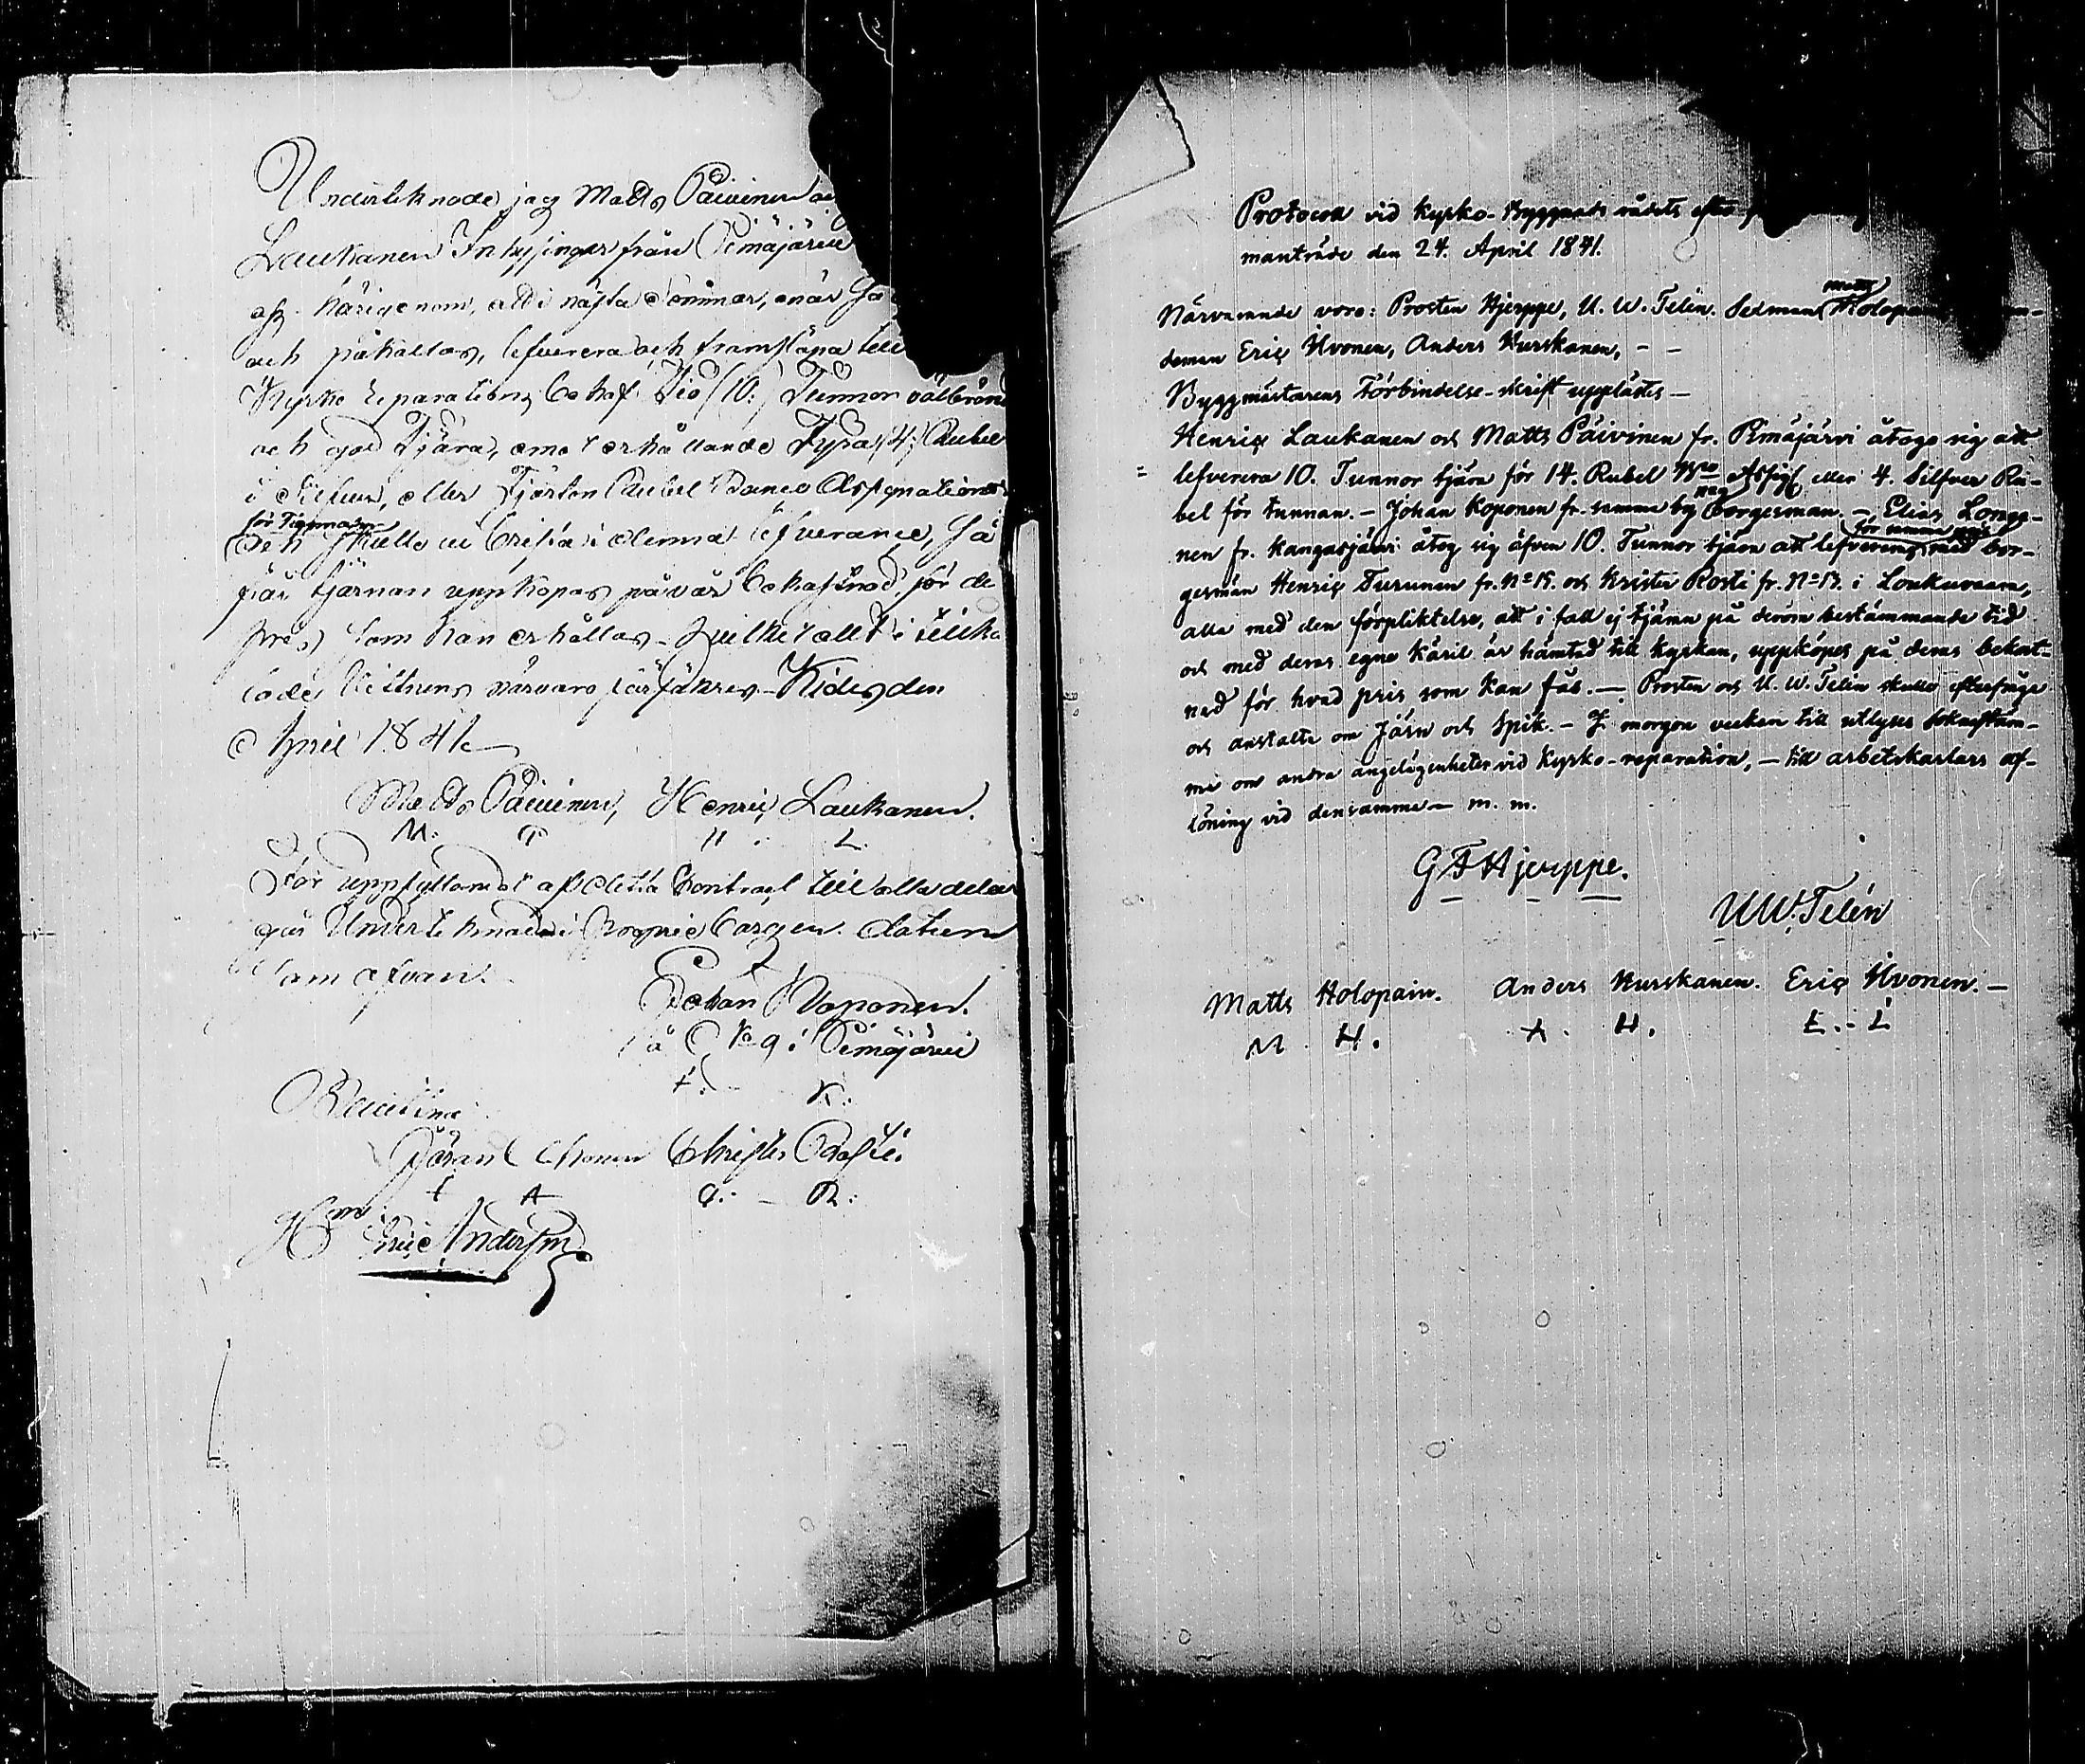 Undertecknade jag Matts Päivinen
Laukanen Inhysingar från Pimäjärvi
härigenom, att i nästa Sommar, när så
och påkallas, lefverera och framsläpa till
Kyrko reparations behof Tio (10:) Tunnor välbränd
och god Tjära, emot erhållande Fyra (4:) Rubel
i Silfver, eller Fjorton Rubel Banco Assignationer
för Tunnan
Och skulle vi brista i denna lefverance, så
får tjärnan uppköpas på vår bekostnad, för de
pris som kan erhållas. Hvilket allt i
Vittnens närvaro försäkras. Kides den
April 1841.
Matts Päivinen, Henric Laukanen.
M. P H. L.
För uppfyllandet af detta Contract till alla delar
går Undertecknad i Proprie borgen. datum
som ofvan.
Johan Koponen.
på No 9 i Pimäjärvi
I. K:
Bevittna
Göran Christer Rosti.
A C: - R:
Eric Andersin
Protocoll vid Kyrko-Byggnads rådets
manträde den 24. April 1841.
Matts
Närvarande voro: Prosten Hjerppe, U. W. Telén. Sexman Holopai
deman Eric Ihvonen, Anders Hurskanen, - -
Byggmästarens Förbindelse-skrift upplästes —
Henric Laukanen och Matts Päivinen fr. Pimäjärvi åtogo sig att
lefverera 10. Tunnor tjära för 14. Rubel Bco Assig. eller 4. Silfver Ru-
bel för tunnan. - Johan Koponen fr. samma by borgesman. - Elias Longo-
för samma pris
nen fr. Kangasjärvi åtog sig äfven 10. Tunnor tjära att lefverera med bor-
gesmän Henric Turunen fr. No 15. och Krister Rosti fr. No 13. i Loukuvaara,
alla med den förpliktelse, att i fall ej tjäran på derom bestämmande tid
och med deras egne Käril är hämtad till Kyrkan, uppköpes på deras bekost-
nad för hvad pris som kan fås. — Prosten och U. W. Telén skulle efterfråga
och anstalta om Järn och Spik. - I morgon veckan till utlyses sokneståm-
ma om andra angelägenheter vid Kyrko-reparation, - till arbetskarlars af-
löning vid densamma — m. m.
G F Hjerppe.
U.W. Telén
Matts Holopain. Anders Hurskanen. Eric Ihvonen. -
M H. A. H. E. - I